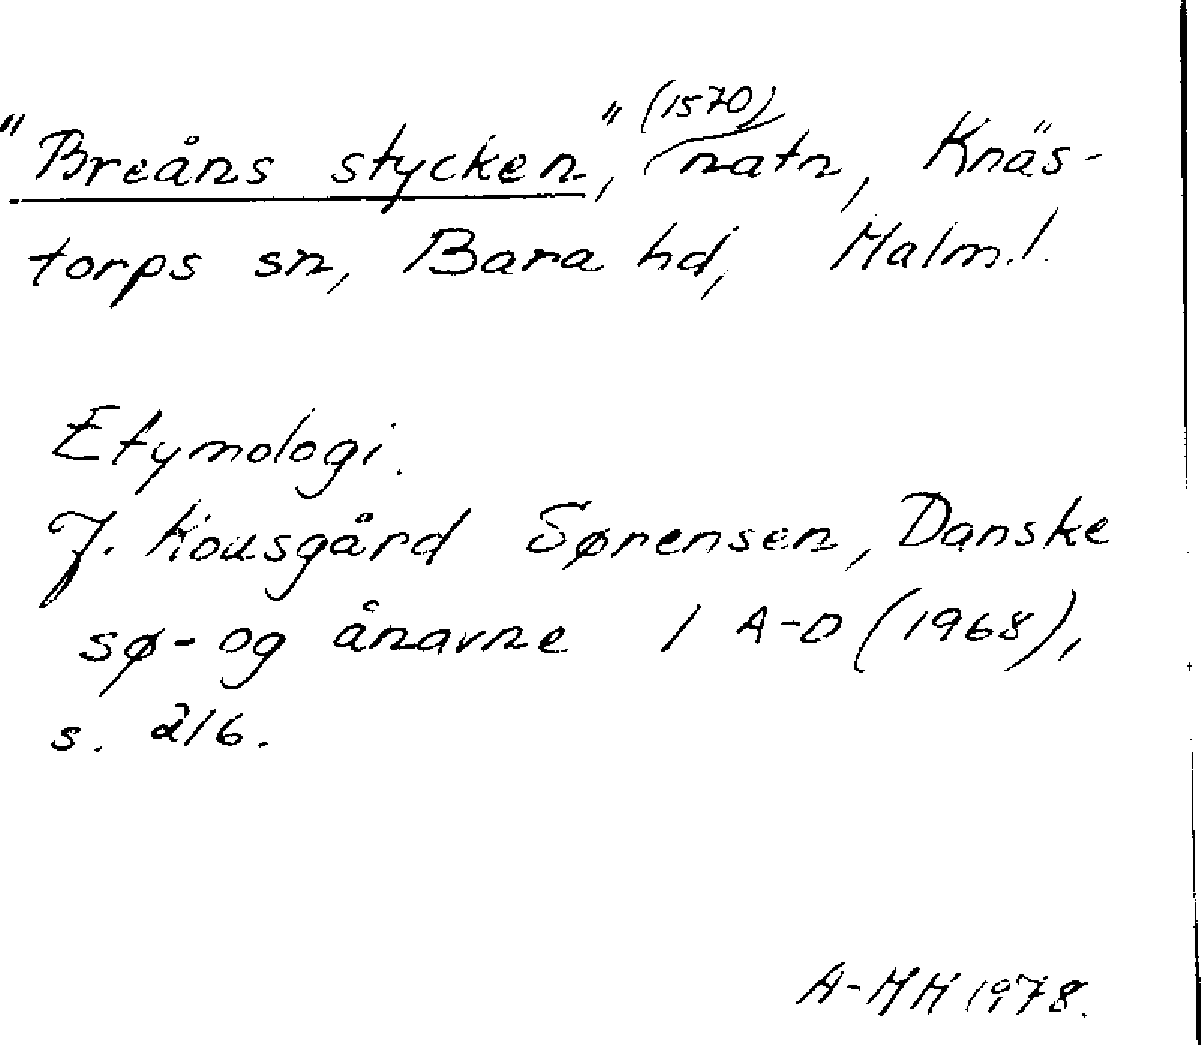 "Breåns stycken", (1570) natn, Knäs-
torps sn, Bara hd, Malm.l.
Etymologi.
J. Kousgård Sørensen, Danske
sø- og ånavne 1 A-D (1968),
s. 216.
A-MH 1978.